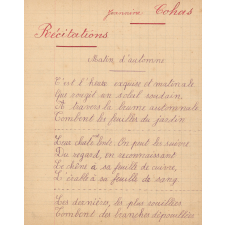 Germaine Cohas
Récitations
Matin d'automne
C'est l'heure exquise et matinale
Que rougit un soleil soudain
A travers la brume automnale
Tombent les feuilles du jardin
Leur chute est lente. On peut les suivre
Du regard, en reconnaissant
Le chêne à sa feuille de cuivre,
L'érable à sa feuille de sang.
Les dernières, les plus rouillées
Tombent des branches dépouillées